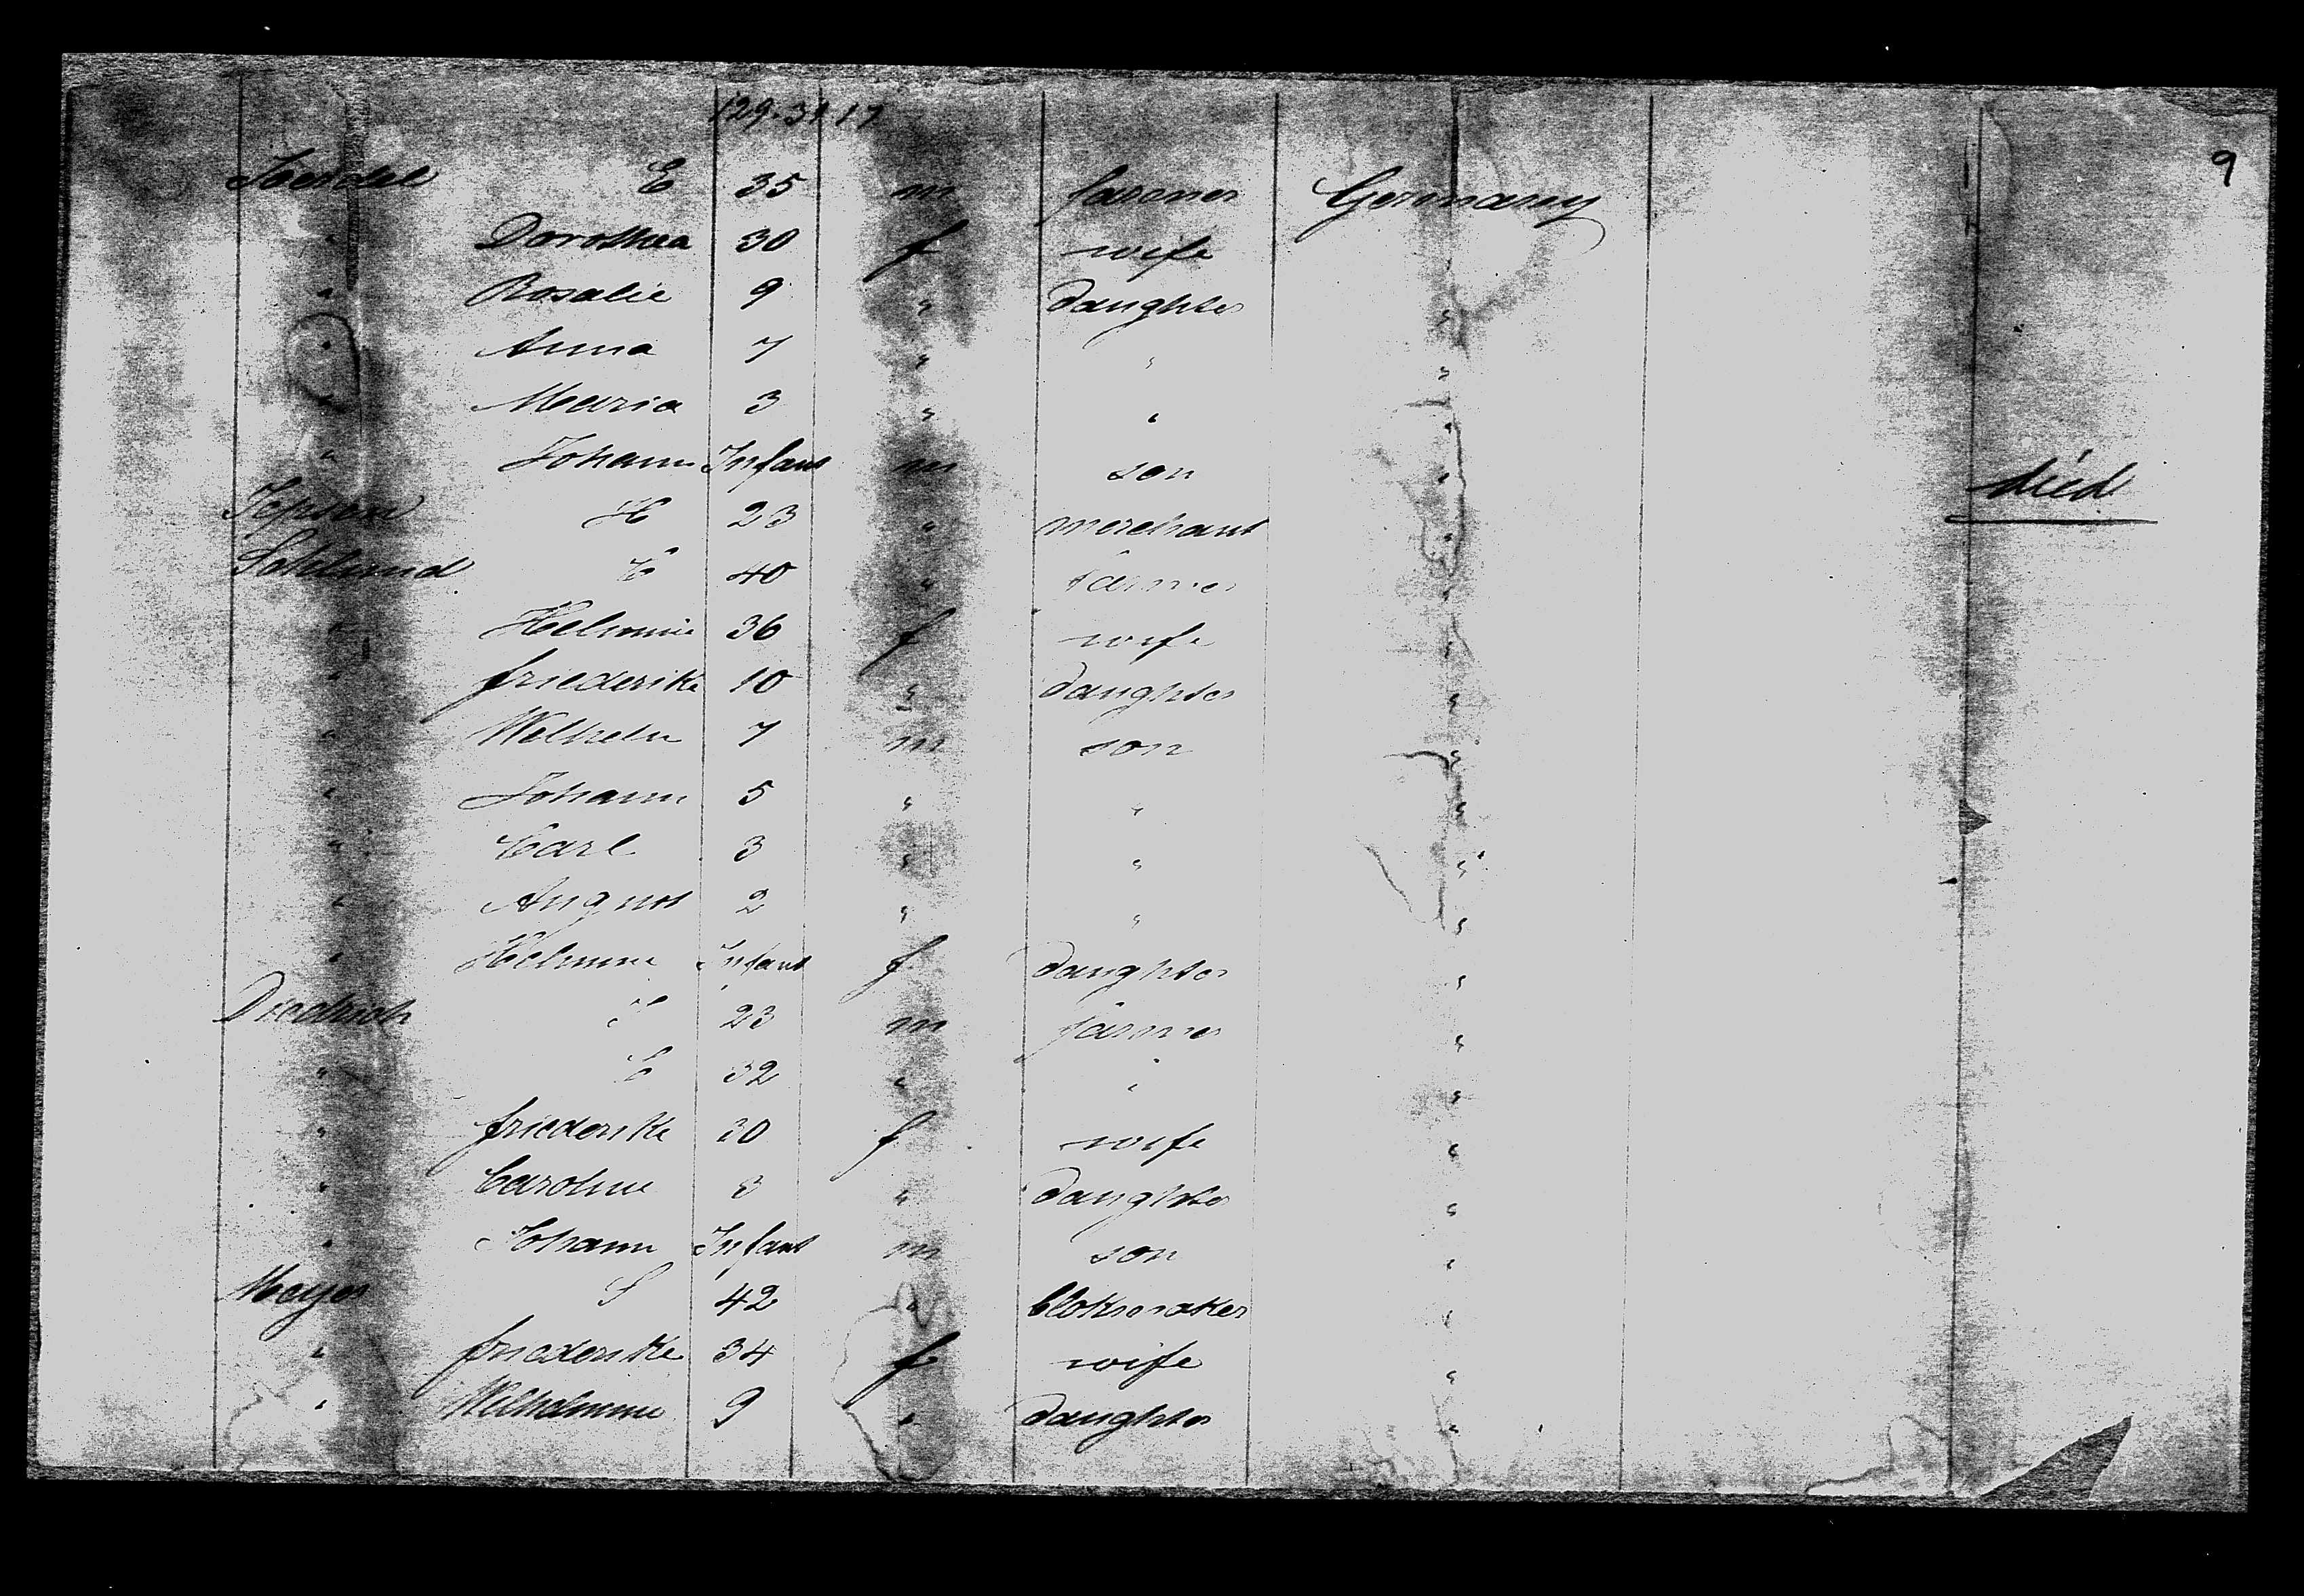 129.31 17
9
E 35 m farmer Germany
" Dorothea 30 f wife
" Rosalie 9 " daughter "
" Anna 7 " " "
" Maria 3 " " "
" Johann Infant m son " died
Jepson H 23 " merchant "
C 40 " farmer "
" Helmine 36 f wife "
" friederike 10 " daughter "
" Wilhelm 7 m son "
" Johann 5 " " "
" Carl 3 " " "
" August 2 " " "
" Helmine Infant f daughter "
Diedrich 23 m farmer "
" C 32 " " "
" friederike 30 f wife "
" Caroline 3 " daughter "
" Johann Infant m son "
Meyer S 42 " Clokmaker "
" friederike 34 f wife "
" Wilhelmine 9 " daughter "